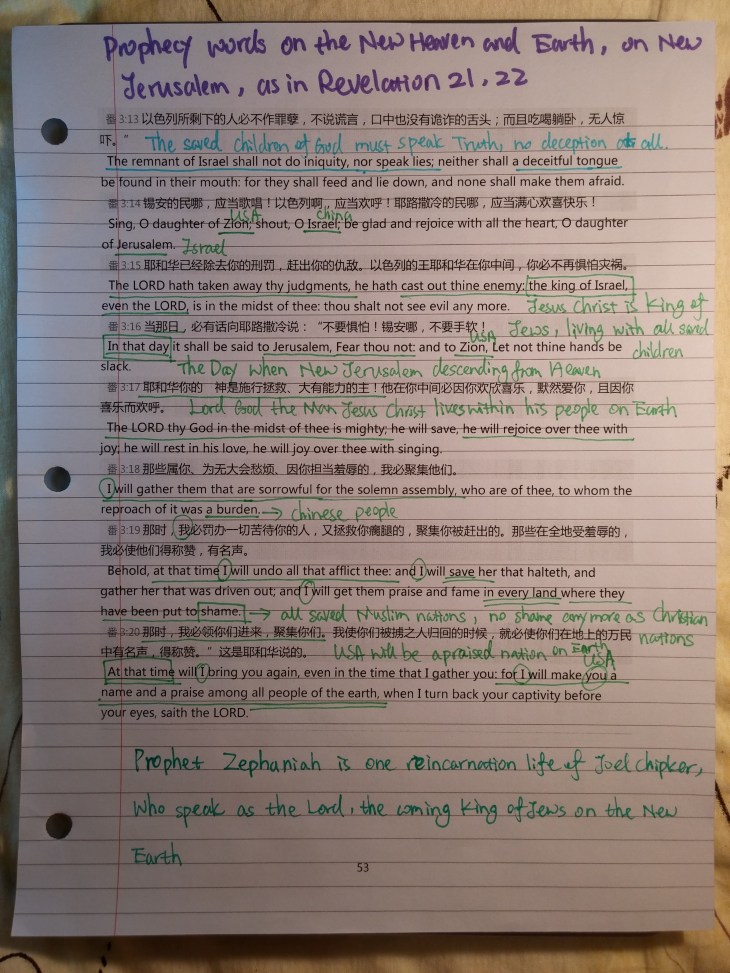 Prophecy words on the New Heaven and Earth, on New
Jerusalem, as in Revelation 21, 22
番 3:13 以色列所剩下的人必不作罪孽，不说谎言，口中也没有诡诈的舌头；而且吃喝躺卧，无人惊
吓。” The saved children of God must speak Truth, no deception at all.
The remnant of Israel shall not do iniquity, nor speak lies; neither shall a deceitful tongue
be found in their mouth: for they shall feed and lie down, and none shall make them afraid.
番 3:14 锡安的民哪，应当歌唱！以色列啊，应当欢呼！耶路撒冷的民哪，应当满心欢喜快乐！
USA china
Sing, O daughter of Zion; shout, O Israel; be glad and rejoice with all the heart, O daughter
of Jerusalem. Israel
番 3:15 耶和华已经除去你的刑罚，赶出你的仇敌。以色列的王耶和华在你中间，你必不再惧怕灾祸。
The LORD hath taken away thy judgments, he hath cast out thine enemy: the king of Israel,
even the LORD, is in the midst of thee: thou shalt not see evil any more. Jesus Christ is King of
番 3:16 当那日，必有话向耶路撒冷说：“不要惧怕！锡安哪，不要手软！ Jews, living with all saved
USA
In that day it shall be said to Jerusalem, Fear thou not: and to Zion, Let not thine hands be children
slack. The Day when New Jerusalem descending from Heaven
番 3:17 耶和华你的 神是施行拯救、大有能力的主！他在你中间必因你欢欣喜乐，默然爱你，且因你
喜乐而欢呼。 Lord God the Man Jesus Christ lives within his people on Earth
The LORD thy God in the midst of thee is mighty; he will save, he will rejoice over thee with
joy; he will rest in his love, he will joy over thee with singing.
番 3:18 那些属你、为无大会愁烦、因你担当羞辱的，我必聚集他们。
I will gather them that are sorrowful for the solemn assembly, who are of thee, to whom the
reproach of it was a burden. → chinese people
番 3:19 那时，我必罚办一切苦待你的人，又拯救你瘸腿的，聚集你被赶出的。那些在全地受羞辱的，
我必使他们得称赞，有名声。
Behold, at that time I will undo all that afflict thee: and I will save her that halteth, and
gather her that was driven out; and I will get them praise and fame in every land where they
have been put to shame. → all saved Muslim nations, no shame anymore as Christian
番 3:20 那时，我必领你们进来，聚集你们。我使你们被掳之人归回的时候，就必使你们在地上的万民 nations
中有名声，得称赞。”这是耶和华说的。 USA will be a praised nation on Earth
USA
At that time will I bring you again, even in the time that I gather you: for I will make you a
name and a praise among all people of the earth, when I turn back your captivity before
your eyes, saith the LORD.
Prophet Zephaniah is one reincarnation life of Joel Chipker,
Who speak as the Lord, the coming King of Jews on the New
Earth
53